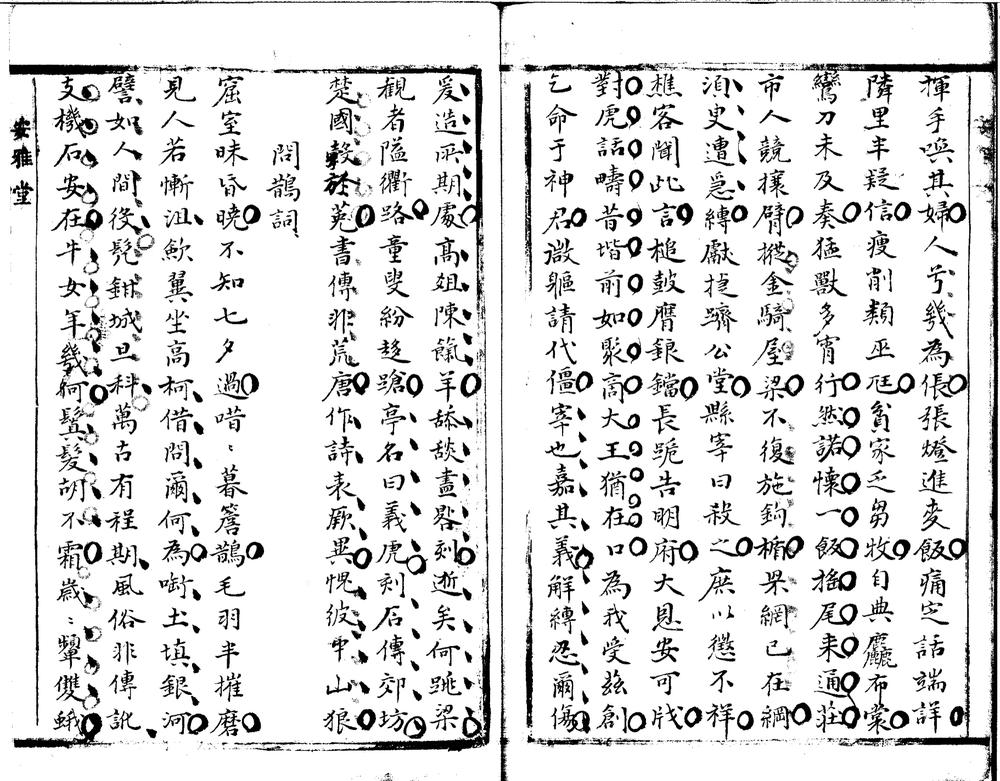 揮手喚其婦人兮幾為倀張燈進麥飯痛定話端詳
隣里半疑信瘦削類巫尫貧家乏芻牧自典麤布裳
鸞刀未及奏猛獸多宵行然諾懷一飯搖尾来通莊
市人競攘臂摐金騎屋梁不復施鉤楯果網已在綱
須臾遭急縛獻捷躋公堂縣宰曰殺之庶以懲不祥
樵客聞此言槌鼓膺鋃鐺長跪告明府大恩安可戕
對虎話疇昔堦前如聚高大王猶在口為我受兹創
乞命于神君微軀請代僵宰也嘉其義解縛忍爾傷
爰造所期處高俎陳餼羊舔舕盡晷刻逝矣何跳梁
観者隘衢路童叟紛趍蹌亭名曰義虎刻石傳郊坊
楚國榖於莵書傳非荒唐作詩表厥異愧彼中山狼
問鵲詞
窟室昧昏曉不知七夕過唶〻暮簷鵲毛羽半摧磨
見人若慚沮歛翼坐高柯借問爾何為啣土填銀河
譬如人間役髠鉗城旦科萬古有程期風俗非傳訛
支機石安在牛女年幾何鬒髮胡不霜歲〻顰雙蛾
安雅堂